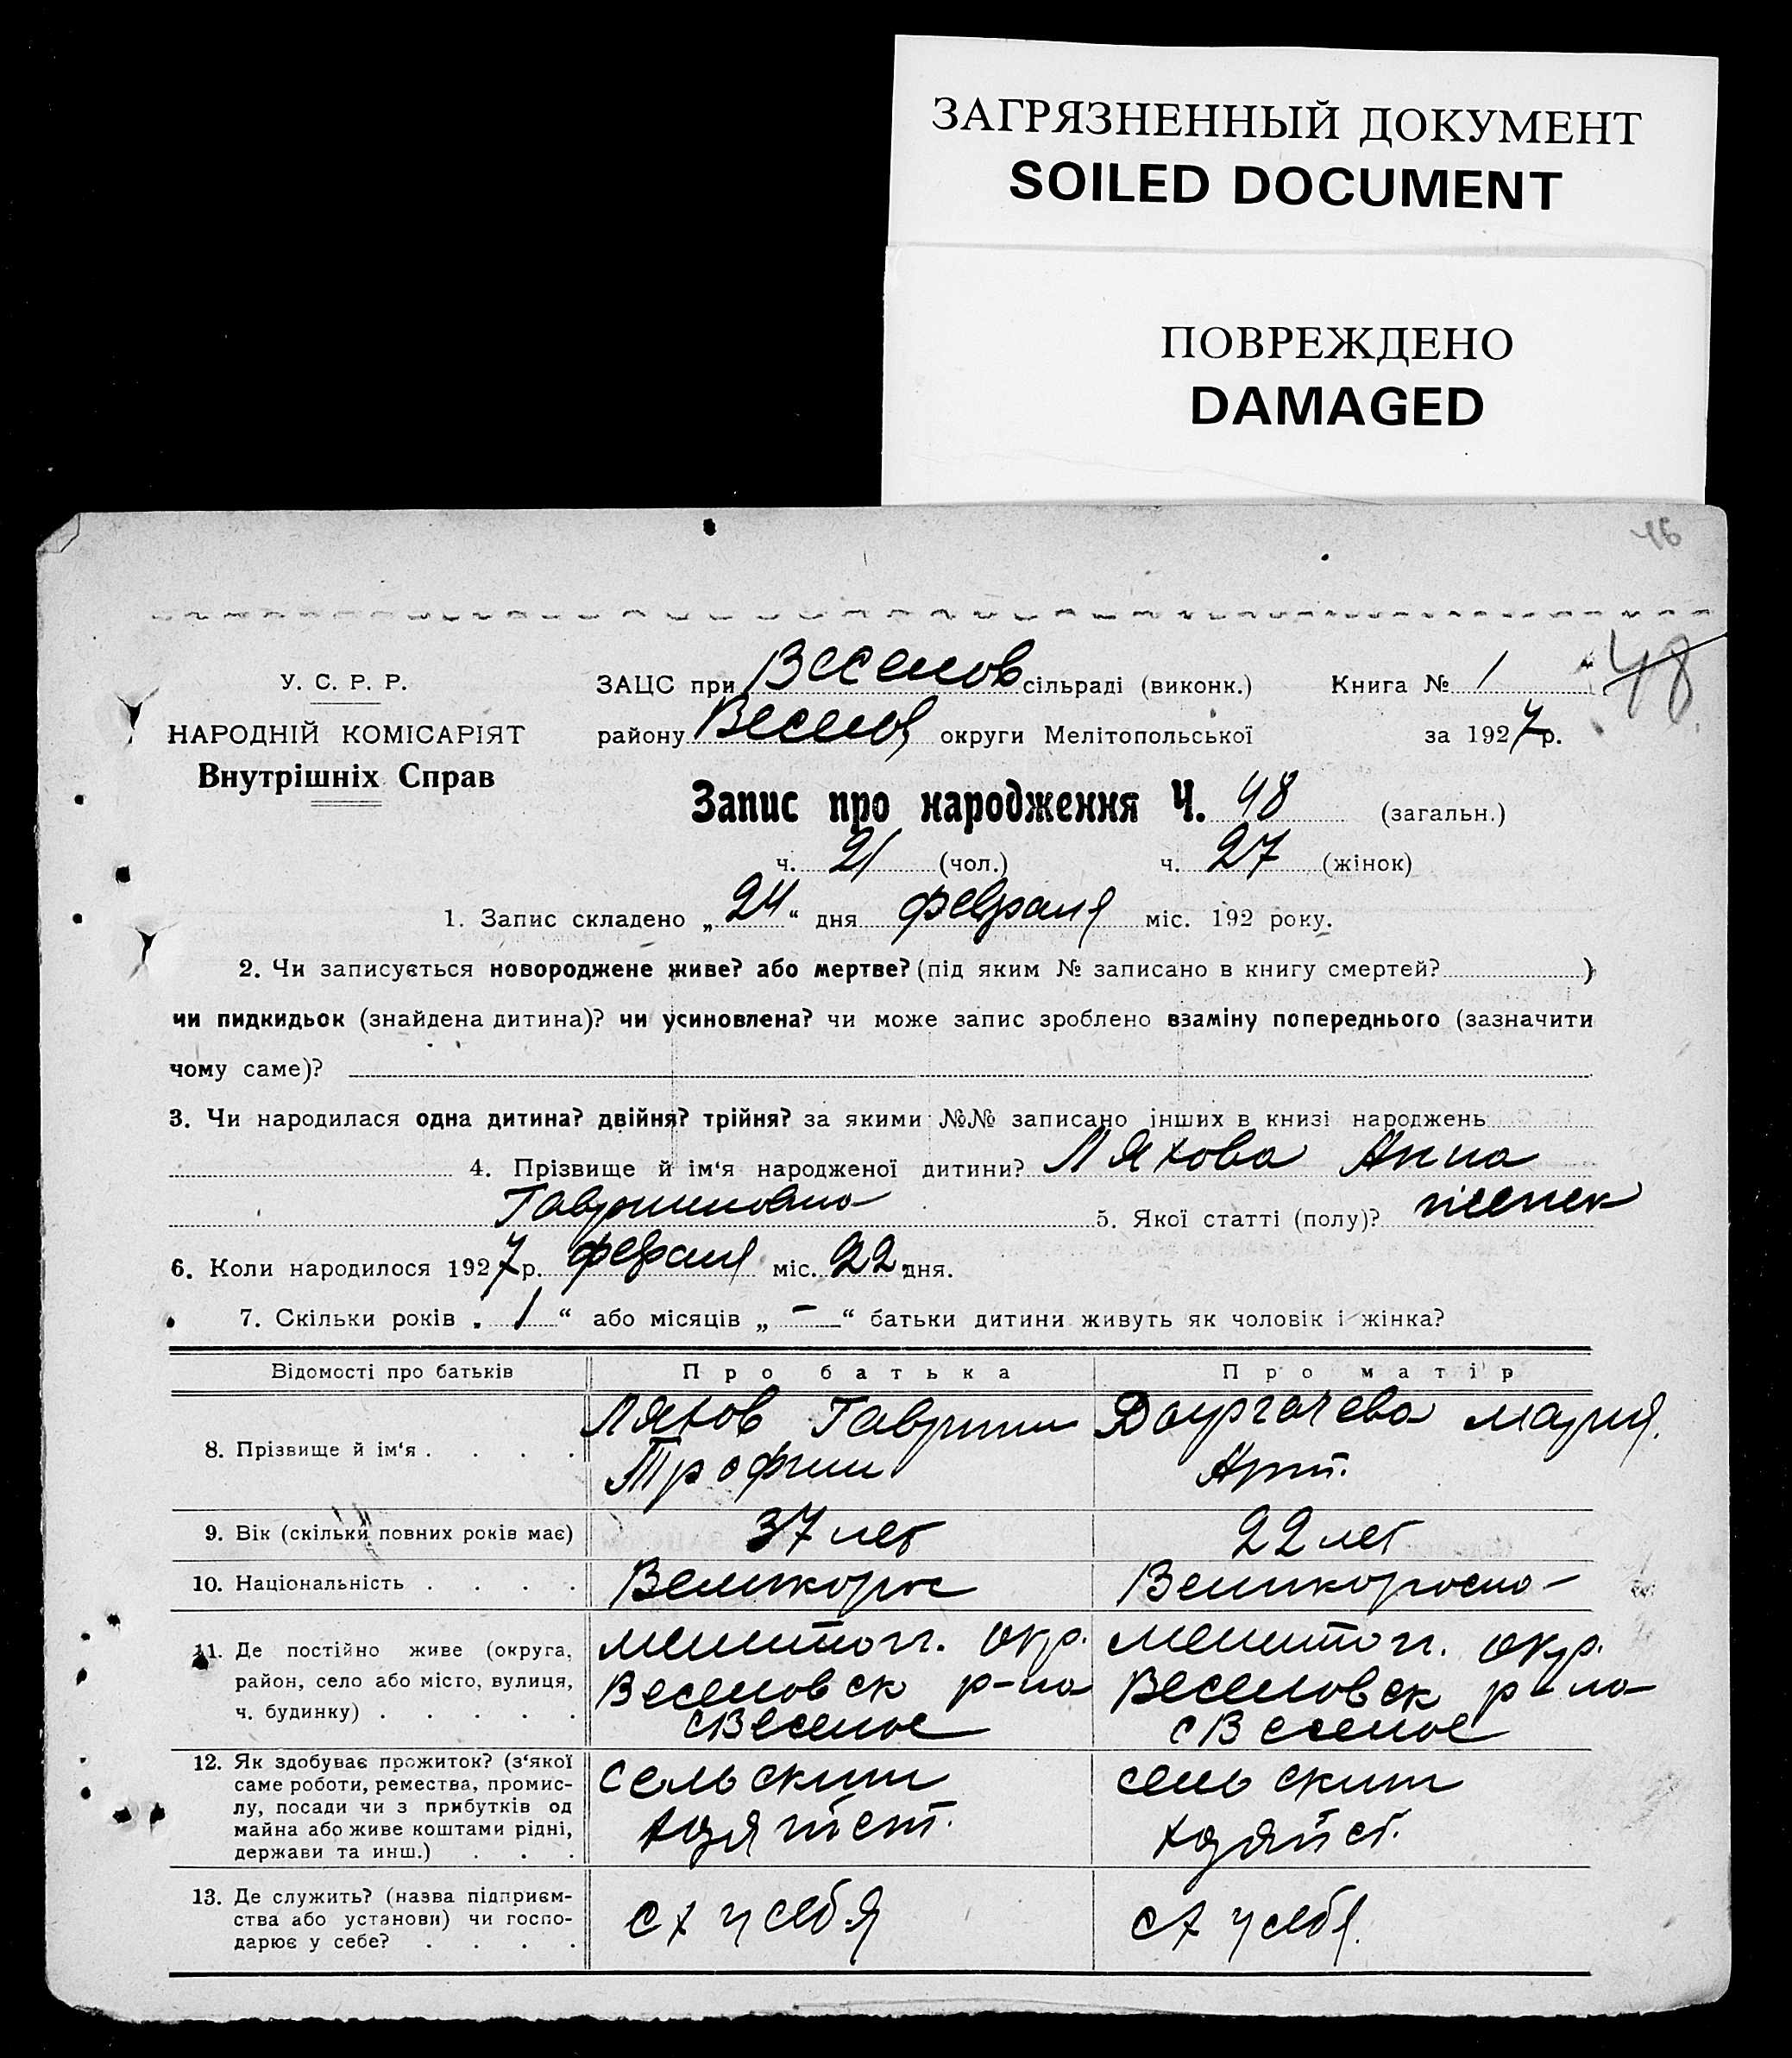 ЗАГРЯЗНЕННЫЙ ДОКУМЕНТ
SOILED DOCUMENT
ПОВРЕЖДЕНО
DAMAGED
46
У. С. Р. Р. ЗАЦС при Веселов сільраді (виконк.) Книга № 1 48
НАРОДНІЙ КОМІСАРІЯТ району Веселов округи Мелітопольської за 1927 р.
Внутрішніх Справ
Запис про народження Ч. 48 (загальн.)
ч. 21 (чол.) ч. 27 (жінок)
1. Запис складено „24“ дня февраля міс. 192 року.
2. Чи записується новороджене живе? або мертве? (під яким № записано в книгу смертей? )
чи пидкидьок (знайдена дитина)? чи усиновлена? чи може запис зроблено взаміну попереднього (зазначити
чому саме)?
3. Чи народилася одна дитина? двійня? трійня? за якими №№ записано інших в книзі народжень
4. Прізвище й ім‘я народженої дитини? Ляхова Анна
Гавриловна 5. Якої статті (полу)? женск
6. Коли народилося 1927 р. февраля міс. 22 дня.
7. Скільки років „ 1 “ або місяців „ – “ батьки дитини живуть як чоловік і жінка?
Відомості про батьків Про батька Про матір
8. Прізвище й ім‘я . . . . Ляхов Гавриил Мария
Трофим Арт.
9. Вік (скільки повних років має) 37 лет 22 лет
10. Національність . . . . Великорос Великоросло-
11. Де постійно живе (округа, Мелитоп. окр. Мелитоп. окр.
район, село або місто, вулиця, Веселовск р-на Веселовск р-на
ч. будинку) . . . . . с Веселое с Веселое
12. Як здобуває прожиток? (з‘якої
саме роботи, ремества, промис- Сельским сельским
лу, посади чи з прибутків од
майна або живе коштами рідні, хозяйст. хозяйст.
держави та инш.) . . .
13. Де служить? (назва підприєм-
ства або установи) чи госпо- сх у себя сх у себя.
дарює у себе? . . . .